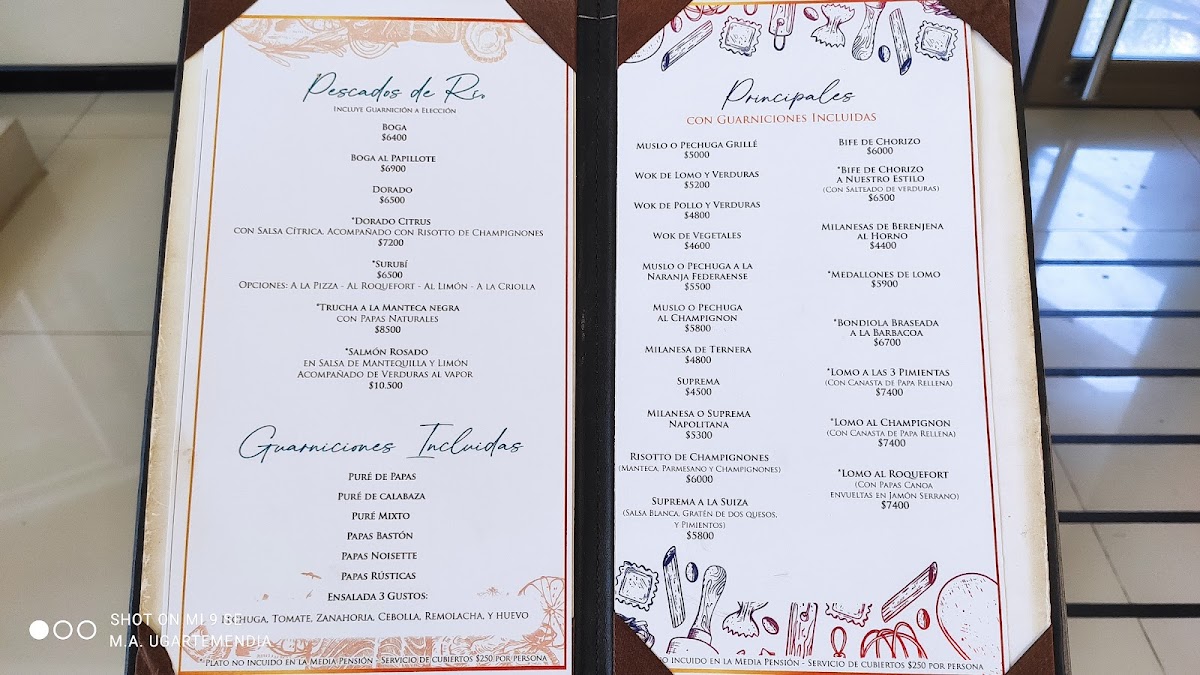 Pescados de Río
Incluye Guarnición a Elección
Boga
$6400
Boga al Papillote
$6900
Dorado
$6500
*Dorado Citrus
con Salsa Cítrica, Acompañado con Risotto de Champignones
$7200
*Surubí
$6500
Opciones: A la Pizza - Al Roquefort - Al Limón - A la Criolla
*Trucha a la Manteca negra
con Papas Naturales
$8500
*Salmón Rosado
en Salsa de Mantequilla y Limón
Acompañado de Verduras al vapor
$10.500
Guarniciones Incluidas
Puré de Papas
Puré de calabaza
Puré Mixto
Papas Bastón
Papas Noisette
Papas Rústicas
Ensalada 3 Gustos:
Lechuga, Tomate, Zanahoria, Cebolla, Remolacha, y Huevo
*Plato no incuido en la Media Pensión - Servicio de cubiertos $250 por persona
Principales
con Guarniciones Incluidas
Muslo o Pechuga Grillé
$5000
Wok de Lomo y Verduras
$5200
Wok de Pollo y Verduras
$4800
Wok de Vegetales
$4600
Muslo o Pechuga a la
Naranja Federaense
$5500
Muslo o Pechuga
al Champignon
$5800
Milanesa de Ternera
$4800
Suprema
$4500
Milanesa o Suprema
Napolitana
$5300
Risotto de Champignones
(Manteca, Parmesano y Champignones)
$6000
Suprema a la Suiza
(Salsa Blanca, Gratén de dos quesos,
y Pimientos)
$5800
Bife de Chorizo
$6000
*Bife de Chorizo
a Nuestro Estilo
(Con Salteado de verduras)
$6500
Milanesas de Berenjena
al Horno
$4400
*Medallones de lomo
$5900
*Bondiola Braseada
a la Barbacoa
$6700
*Lomo a las 3 Pimientas
(Con Canasta de Papa Rellena)
$7400
*Lomo al Champignon
(Con Canasta de Papa Rellena)
$7400
*Lomo al Roquefort
(Con Papas Canoa
envueltas en Jamón Serrano)
$7400
Plato no incuido en la Media Pensión - Servicio de cubiertos $250 por persona
SHOT ON MI 9 SE
M.A. UGARTEMENDIA